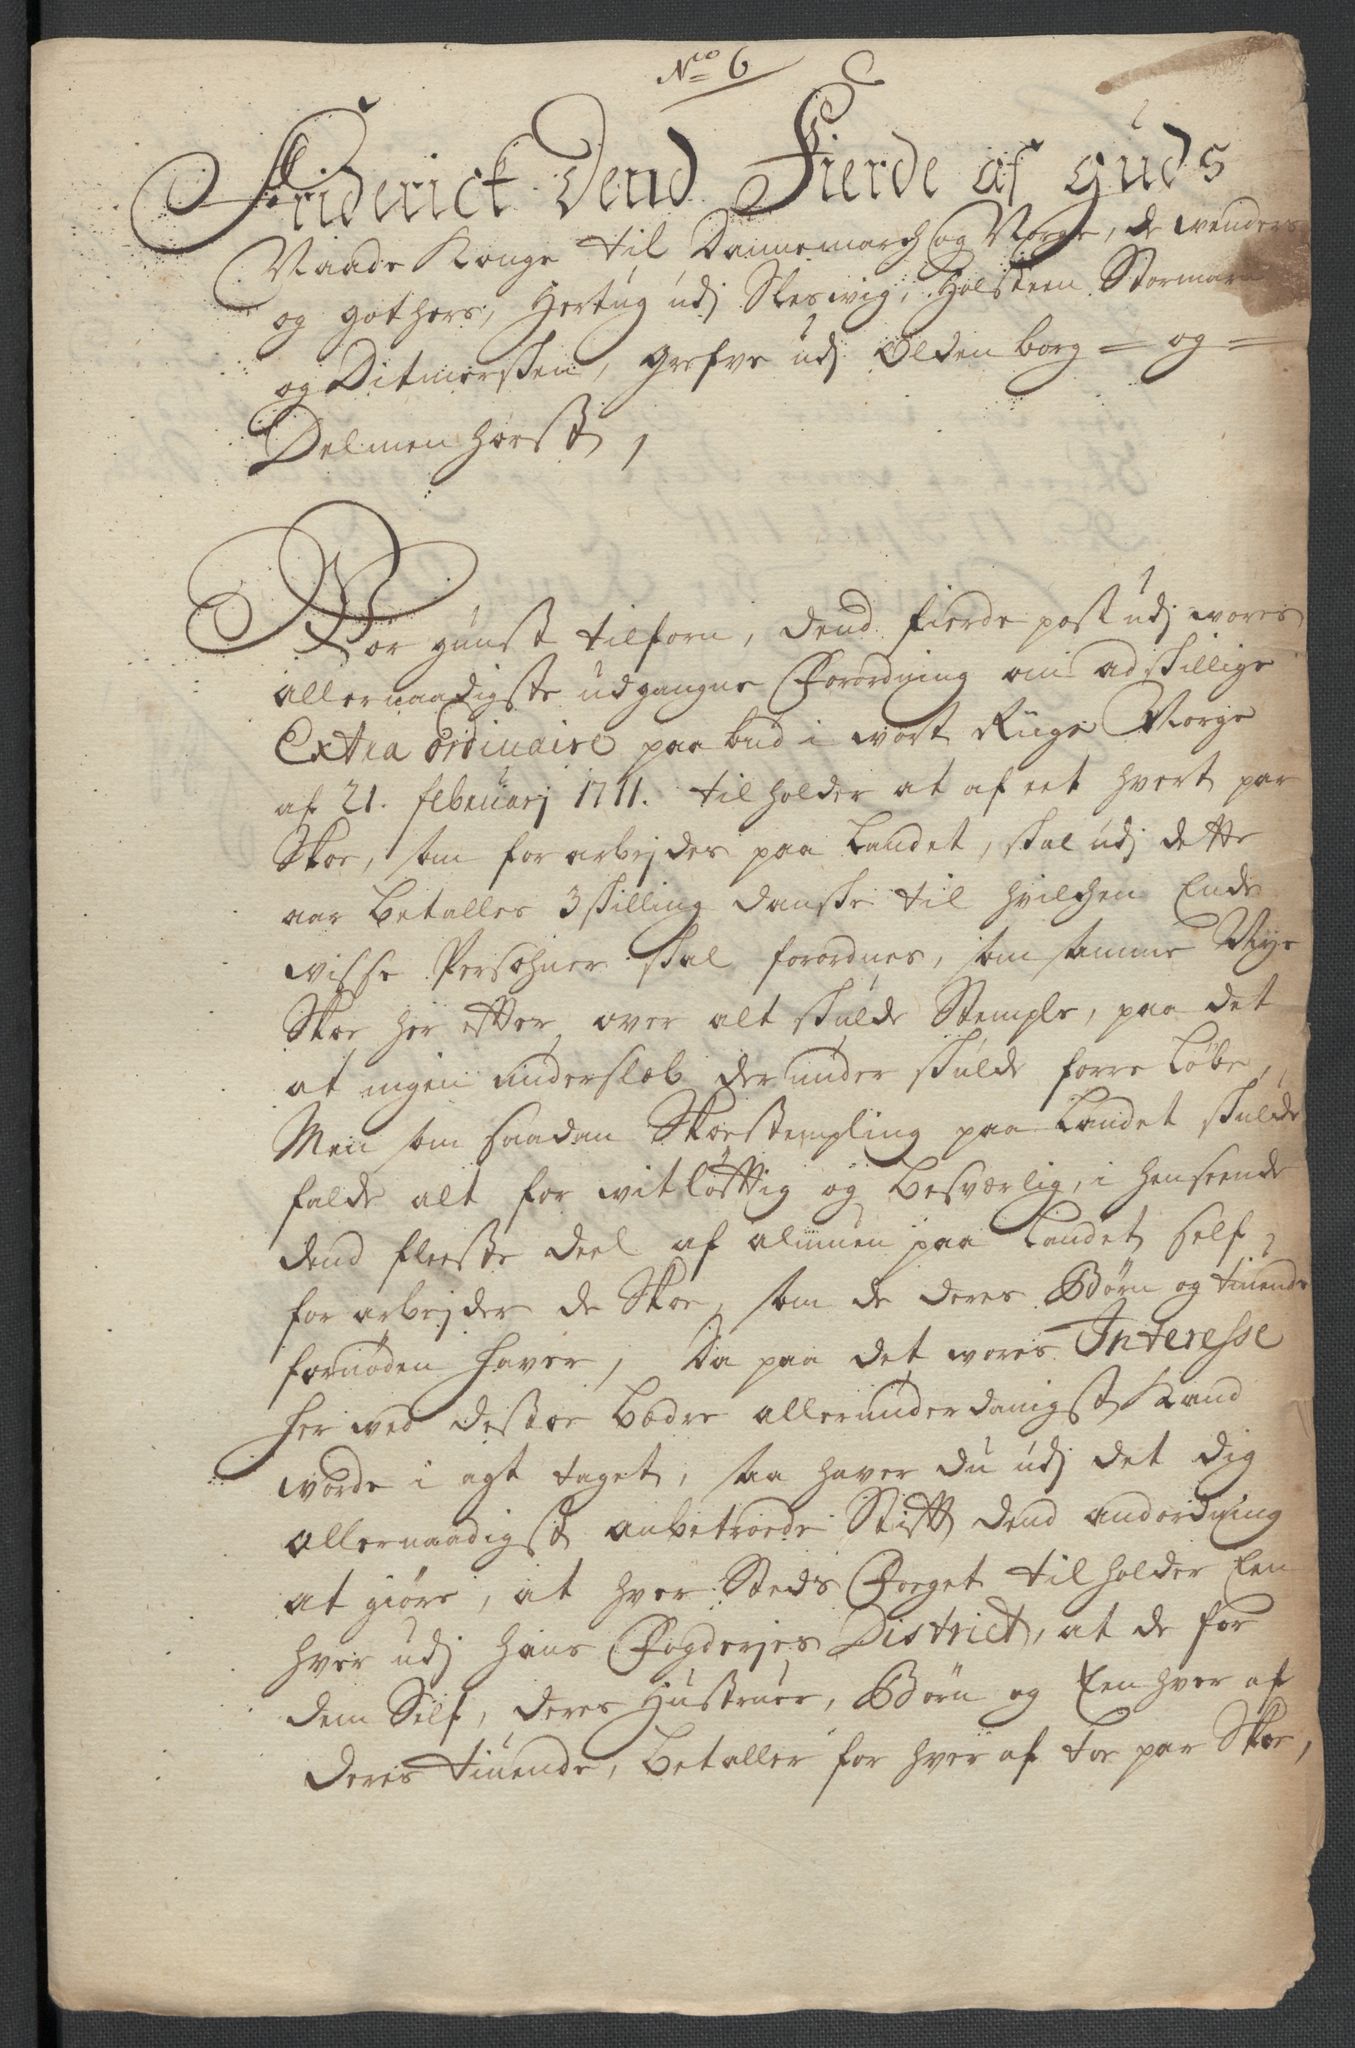 No 6
Friderick Dend Fierde af Guds
Naade Konge til Dannemarch og Norge, de wenders
og gothers, Hertug udj Sleswig, Holsteen Stormarn
og Ditmersken, Grefve udj Oldenborg = og =
Delmenhorst,
Wor gunst tilforn, dend fierde post udj wores
allernaadigste udgangne Forordning om adskillige
Extra ordinaire paabud i wort Riige Norge
af 21. februarj 1711. tilholder at af eet hvert par
Skoe, som forarbejdes paa Landet, skal udj dette
aar betalles 3 skilling danske til hvilchen Ende
wisse Persohner skal forordnes, som samme Nye
Skoe her effter over alt skulde Stemple, paa det
at ingen underslæb derunder skulde forreløbe,
Men som saadan Skoestempling paa Landet skulde
falde alt for witløfftig og besværlig, i henseende
dend fleeste deel af almuen paa Landet self
forarbejder de Skoe, som de deres Børn og tiuende
fornøden haver, Da paa det wores Interesse
herved dessto bedre allerunderdanigst kand
worde i agt taget, saa haver du udj det dig
allernaadigst anbetroede Stifft dend andordning
at giøre, at hver Steds Foeget tilholder Een
hver udj hans Fogderjes District, at de for
dem Self, deres Hustruer, Børn og Een hver af
deres tiuende, betaller for hver af toe par Skoe,